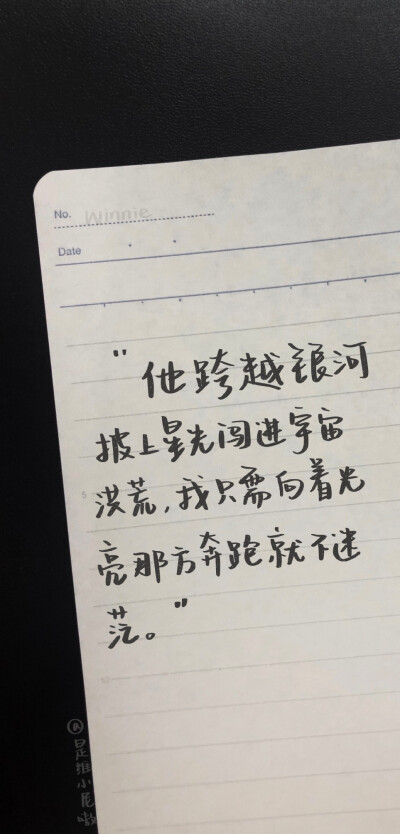 No. Winnie
Date
"他跨越银河
披上星光闯进宇宙
洪荒,我只需向着光
亮那方奔跑就不迷
茫。"